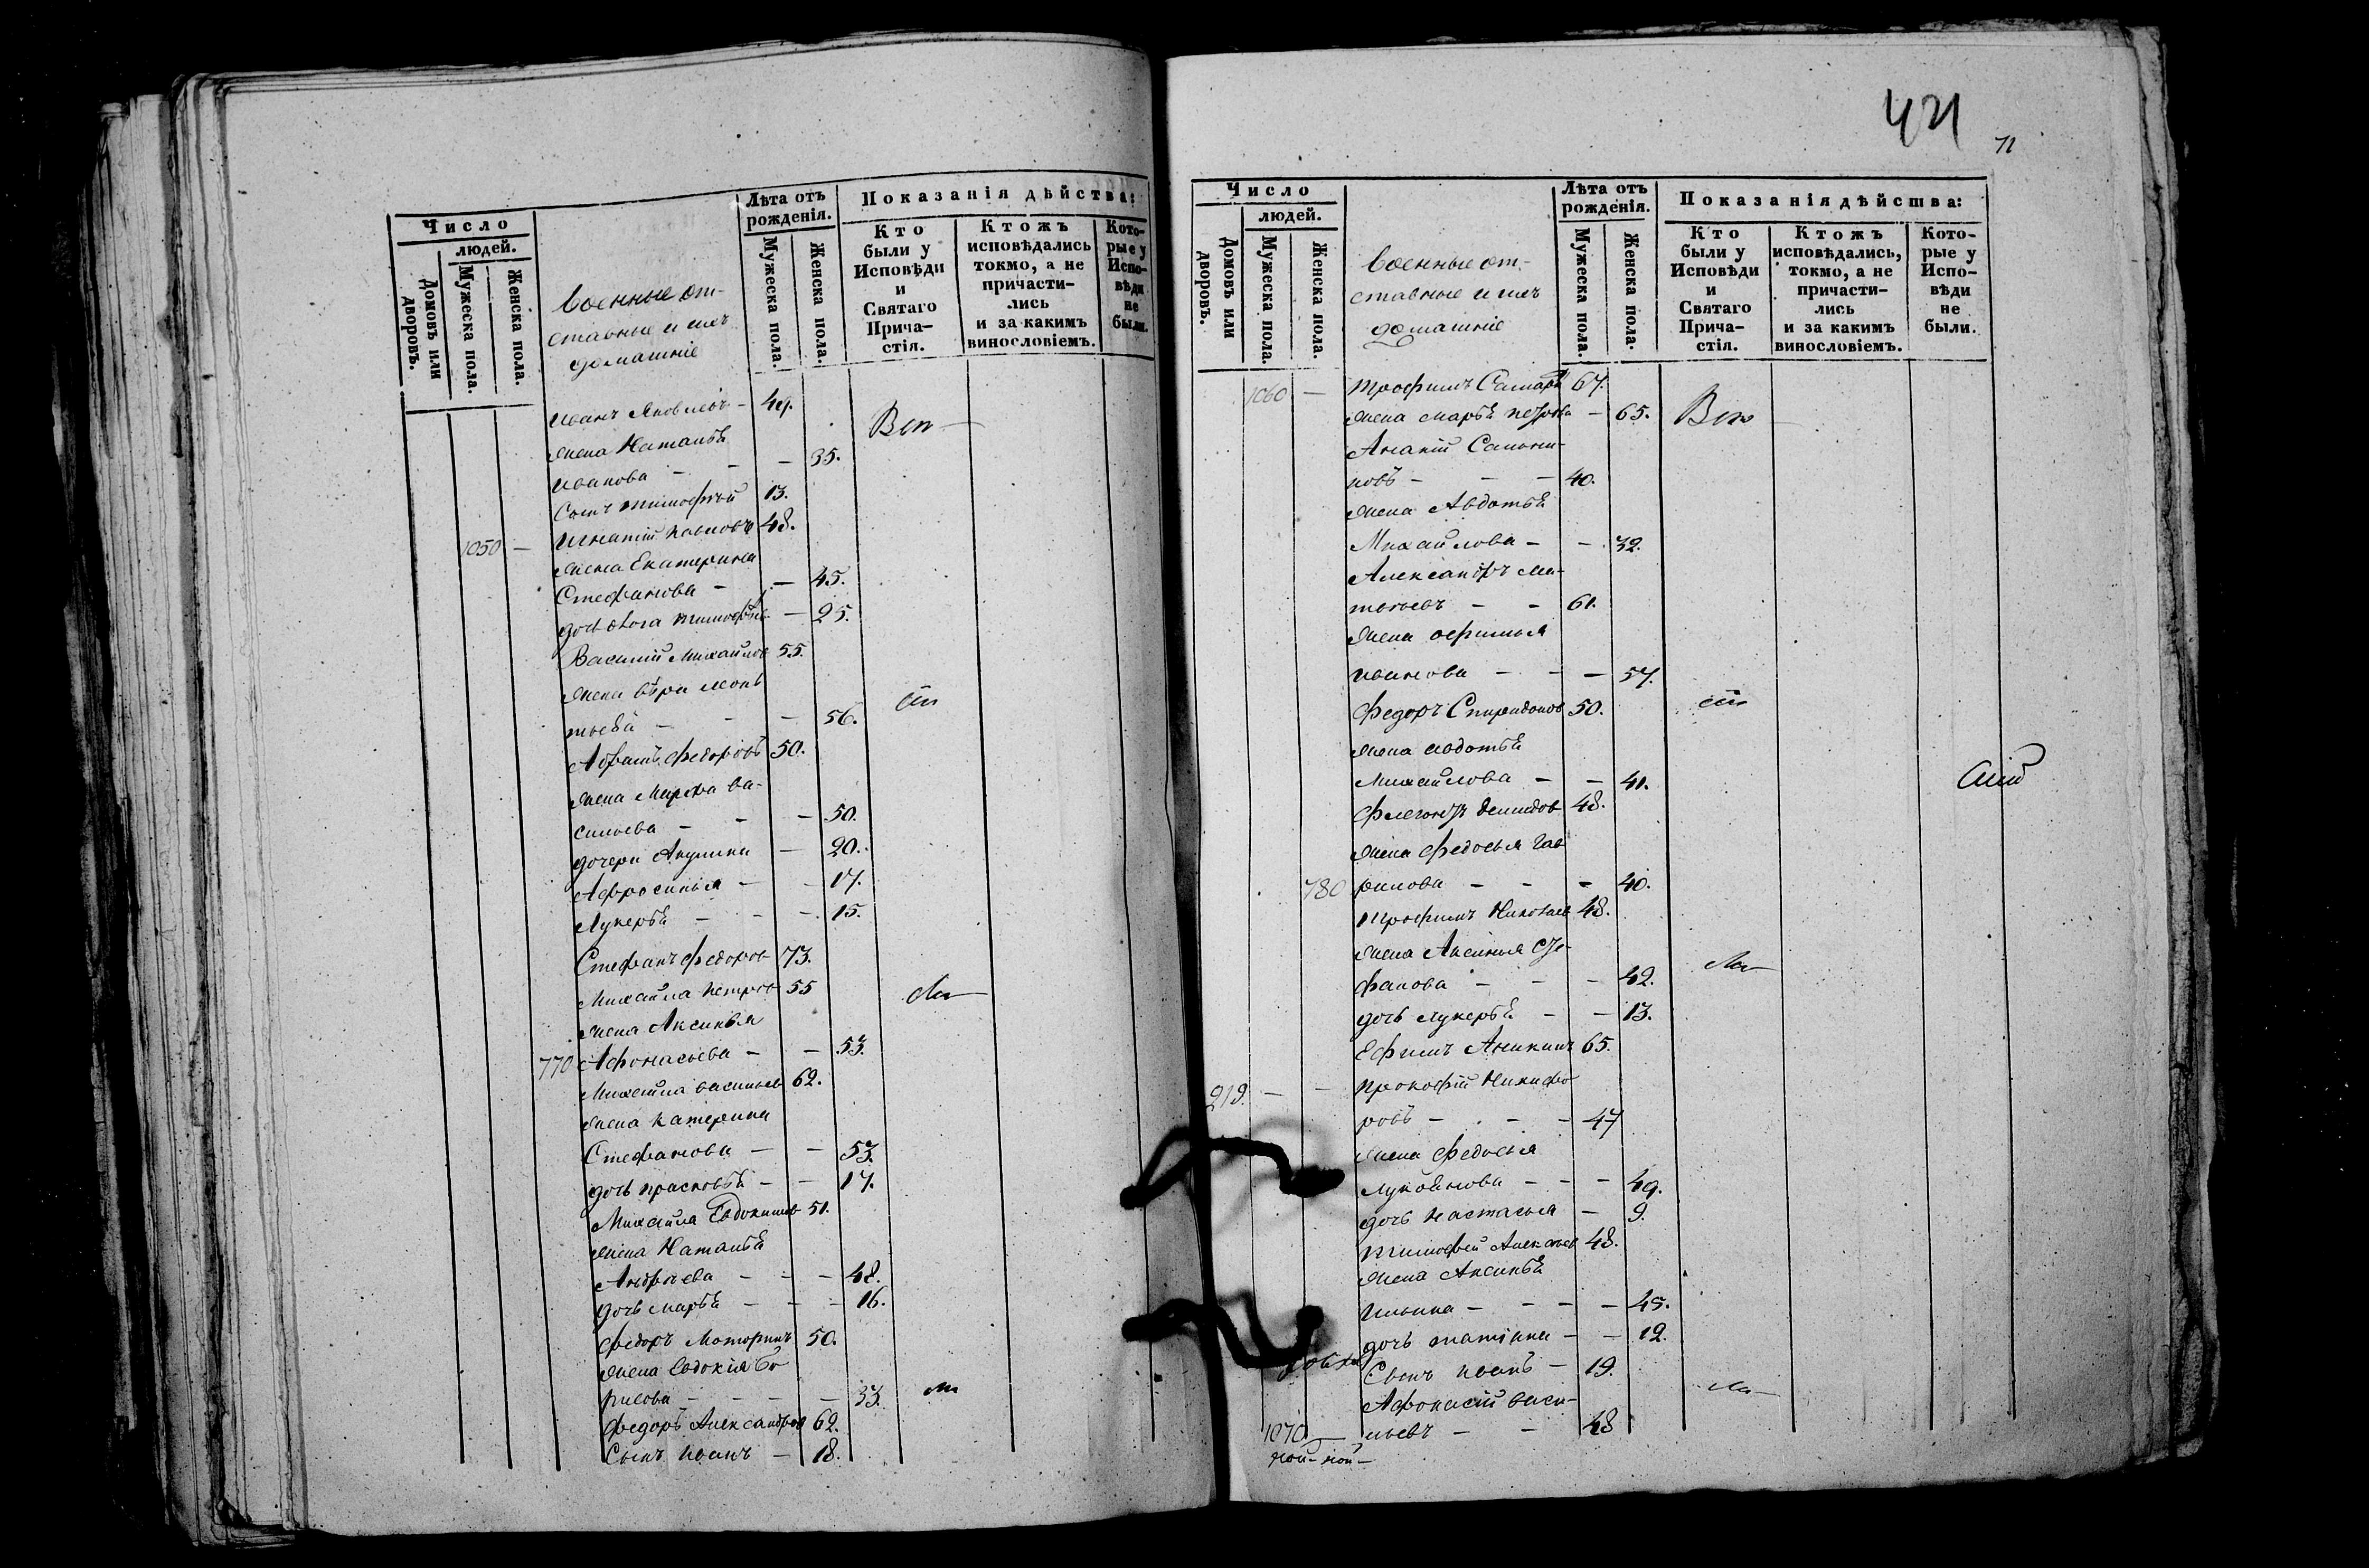 Число
людей.
Домовъ или дворовъ.
Мужеска пола.
Женска пола.
военные от-
ставные и ихъ
домашніе
Лѣта отъ
рожденія.
Мужеска пола.
Женска пола.
Показанія дѣйства:
Кто
были у
Исповѣди
и
Святаго
Прича-
стія.
Ктожъ
исповѣдались
токмо, а не
причасти-
лись
и за какимъ
винословіемъ.
Кото-
рые у
Испо-
вѣди
не
были.
Иванъ Яковлевъ - 49.
жена Наталья
Иванова - - - 35.
Сынъ Тимофѣй 13.
1050 - Игнатій Павловъ 48.
жена Екатерина
Стефанова - - 45.
дочь Тимофѣева - 25.
Василій Михайлов 55.
жена Вѣра Леонь
тьева - - - 56.
Абрамъ Федоровъ 50.
жена Марфа Ва-
сильева - - - 50.
дочери Акулина - 20.
Афросинья - - 17.
Лукерья - - - 15.
Стефанъ Федоров 73.
Михайла Петров 55
жена Аксинья
770 Афонасьева - - 53.
Михайла Васильев 62.
жена Катерина
Стефанова - - 53.
дочь Прасковья - - 17.
Михайла Евдокимов 51.
жена Наталья
Андреева - - - 48.
дочь Марья - - - 16.
Федоръ Моторинъ 50.
жена Евдокія Бо
рисова - - - - 33.
Федоръ Александров 62.
Сынъ Иванъ - 18.
421
71
Число
людей.
Домовъ или дворовъ.
Мужеска пола.
Женска пола.
военные от-
ставные и ихъ
домашніе
Лѣта отъ
рожденія.
Мужеска пола.
Женска пола.
Показанія дѣйства:
Кто
были у
Исповѣди
и
Святаго
Прича-
стія.
Ктожъ
исповѣдались,
токмо, а не
причасти-
лись
и за какимъ
винословіемъ.
Кото-
рые у
Испо-
вѣди
не
были.
1060 - Трофимъ 67.
жена Марья Петрова - 65.
Ананій Сальни-
ковъ - - - 40.
жена Авдотья
Михайлова - - 32.
Александръ Ма-
твѣевъ - - 61.
жена Офимья
Иванова - - - 57.
Федоръ Спиридонов 50.
жена Авдотья
Михайлова - - 41.
Флегонтъ Демидов 48.
жена Федосья Гав
780 рилова - - - 40.
Трофимъ Николаев 48.
жена Аксинья Сте-
фанова - - - 42.
дочь Лукерья - - 13.
Ефимъ Аникинъ 65.
219. - - Прокофій Никифо
ровъ - - - 47
жена Федосья
Лукоянова - - - 49.
дочь Настасья - 9.
Тимофей Алексѣев 48.
жена Аксинья
Ильина - - - - 45.
дочь Татіана - - 12.
Сынъ Иванъ - 19.
Афонасій Васи-
1070 - льевъ - - 48